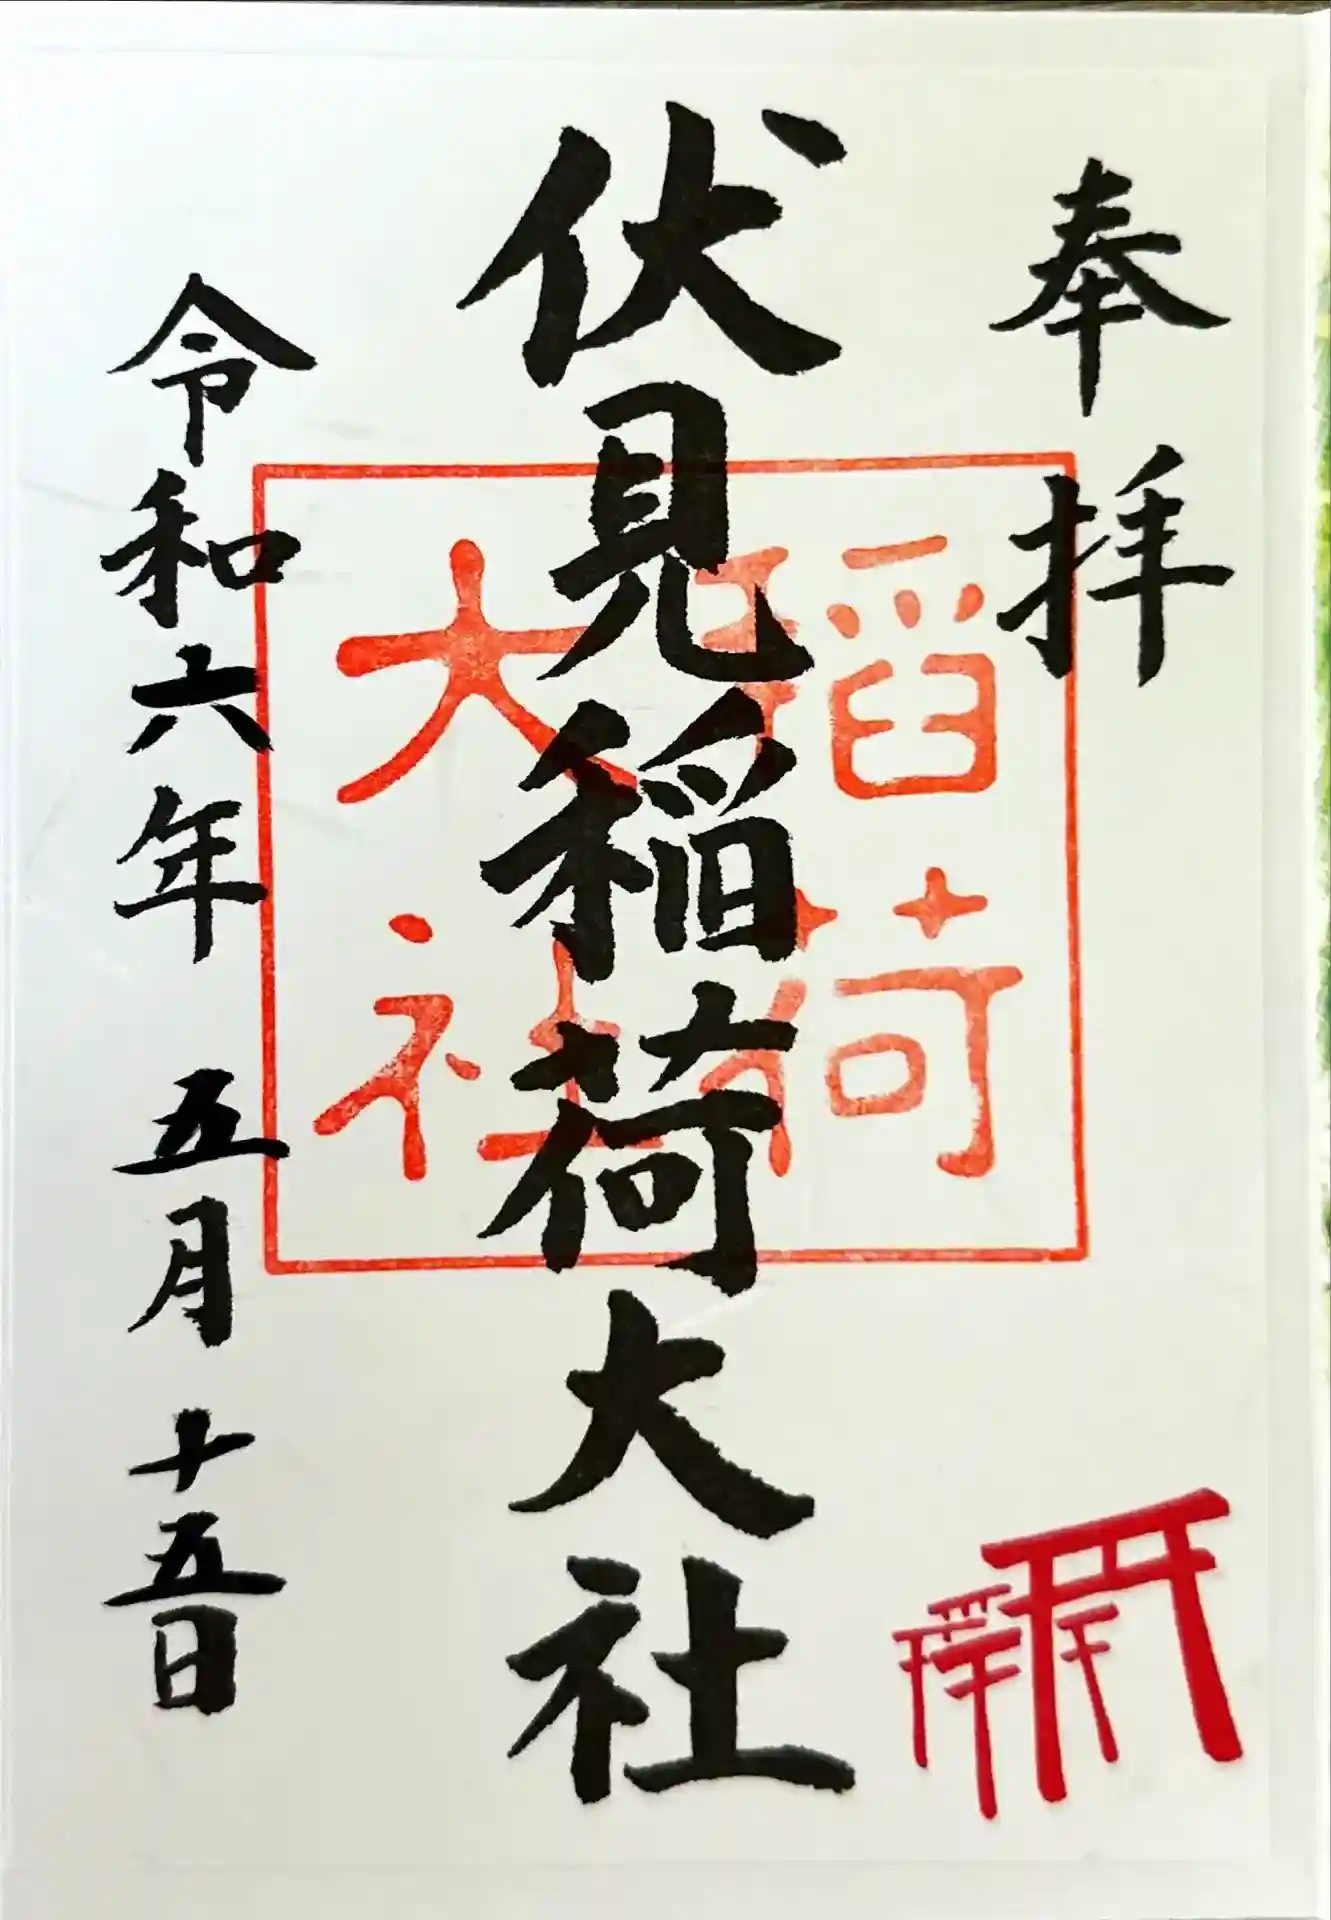 奉拝
伏見稲荷大社
稲荷
大社
令和六年 五月 十五日